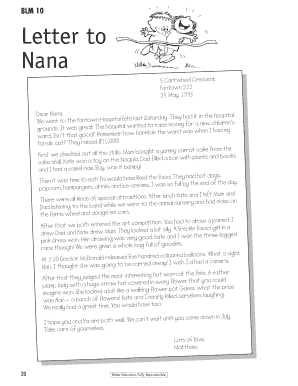 BLM 10
Letter to
Nana
5 Cartwheel Crescent
Fairtown 222
25 May, 1995
Dear Nana,
We went to the Fairtown Hospital fete last Saturday. They had it in the hospital
grounds. It was great. The hospital wanted to raise money for a new children's
ward. Isn't that good? Remember how horrible the ward was when I had my
tonsils out? They raised $15,000!
First we checked out all the stalls. Mum bought a yummy carrot cake from the
cake stall. Kate won a toy on the hoopla. Dad filled a box with plants and books
and I had a camel ride. Boy, was it bumpy!
Then it was time to eat! Pa would have liked the food. They had hot dogs,
popcorn, hamburgers, drinks and ice-creams. I was so full by the end of the day.
There were all kinds of special attractions. After lunch Kate and I left Mum and
Dad listening to the band while we went to the animal nursery and had rides on
the ferris wheel and dodgem cars.
After that we both entered the art competition. You had to draw a parent. I
drew Dad and Kate drew Mum. They looked a bit silly. A freckle faced girl in a
pink dress won. Her drawing was very good. Kate and I won the three-legged
race though! We were given a whole bag full of goodies.
At 2.30 Doctor McDonald released the hundred coloured balloons. What a sight
Nan. I thought she was going to be carried away! I wish I'd had a camera.
After that they judged the most interesting hat worn at the fete. A rather
plump lady with a huge straw hat covered in every flower that you could
imagine won. She looked a bit like a walking flower pot. Guess what the prize
was Nan – a bunch of flowers! Kate and I nearly killed ourselves laughing.
We really had a great time. You would have too.
I hope you and Pa are both well. We can't wait until you come down in July.
Take care of yourselves.
Lots of love,
Matthew.
20
Blake Education Fully Reproducible